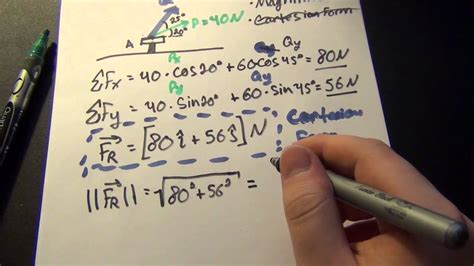 25°
20°
P=40N
A
Cartesion Form
Px Qx Qy
ΣFx = 40·Cos20° + 60·Cos45° = 80N
Py Qy
ΣFy = 40·Sin20° + 60·Sin45° = 56N
F⃗R = [80î + 56ĵ]N
Cartesion
||F⃗R|| = √80² + 56² =